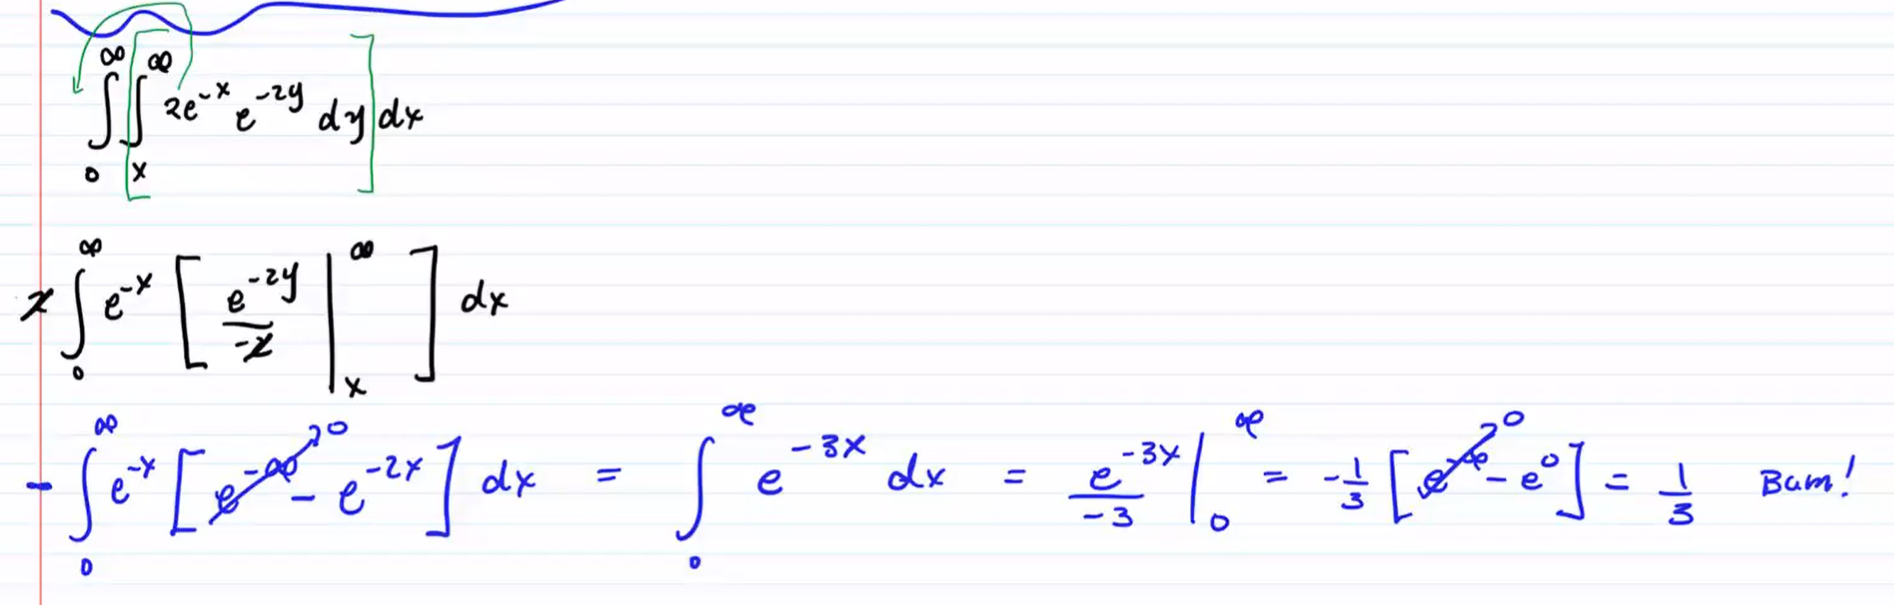 ∫₀^∞ [∫ₓ^∞ 2e^{-x} e^{-2y} dy] dx
2 ∫₀^∞ e^{-x} [ e^{-2y}/-2 |ₓ^∞ ] dx
- ∫₀^∞ e^{-x} [ e^{-∞}↗0 - e^{-2x} ] dx = ∫₀^∞ e^{-3x} dx = e^{-3x}/-3 |₀^∞ = -1/3 [ e^{-∞}↗0 - e^0 ] = 1/3 Bam!